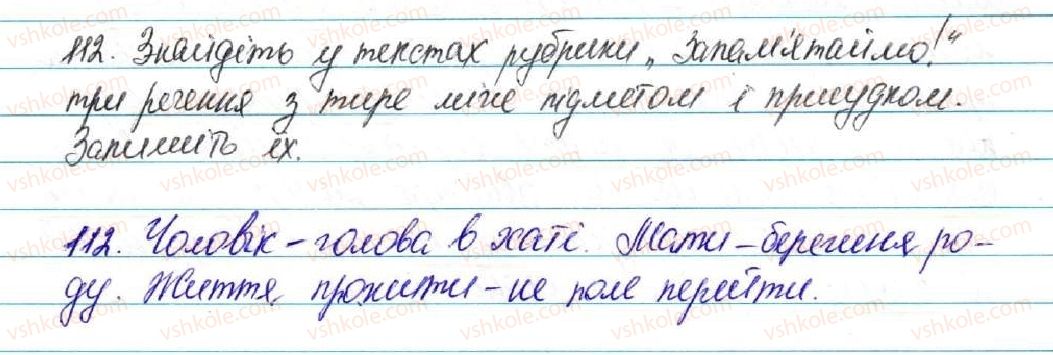 112. Знайдіть у текстах рубрики „Запам'ятаймо!"
три речення з тире між підметом і присудком.
Запишіть їх.
112. Чоловік – голова в хаті. Мати – берегиня ро-
ду. Життя прожити – не поле перейти.